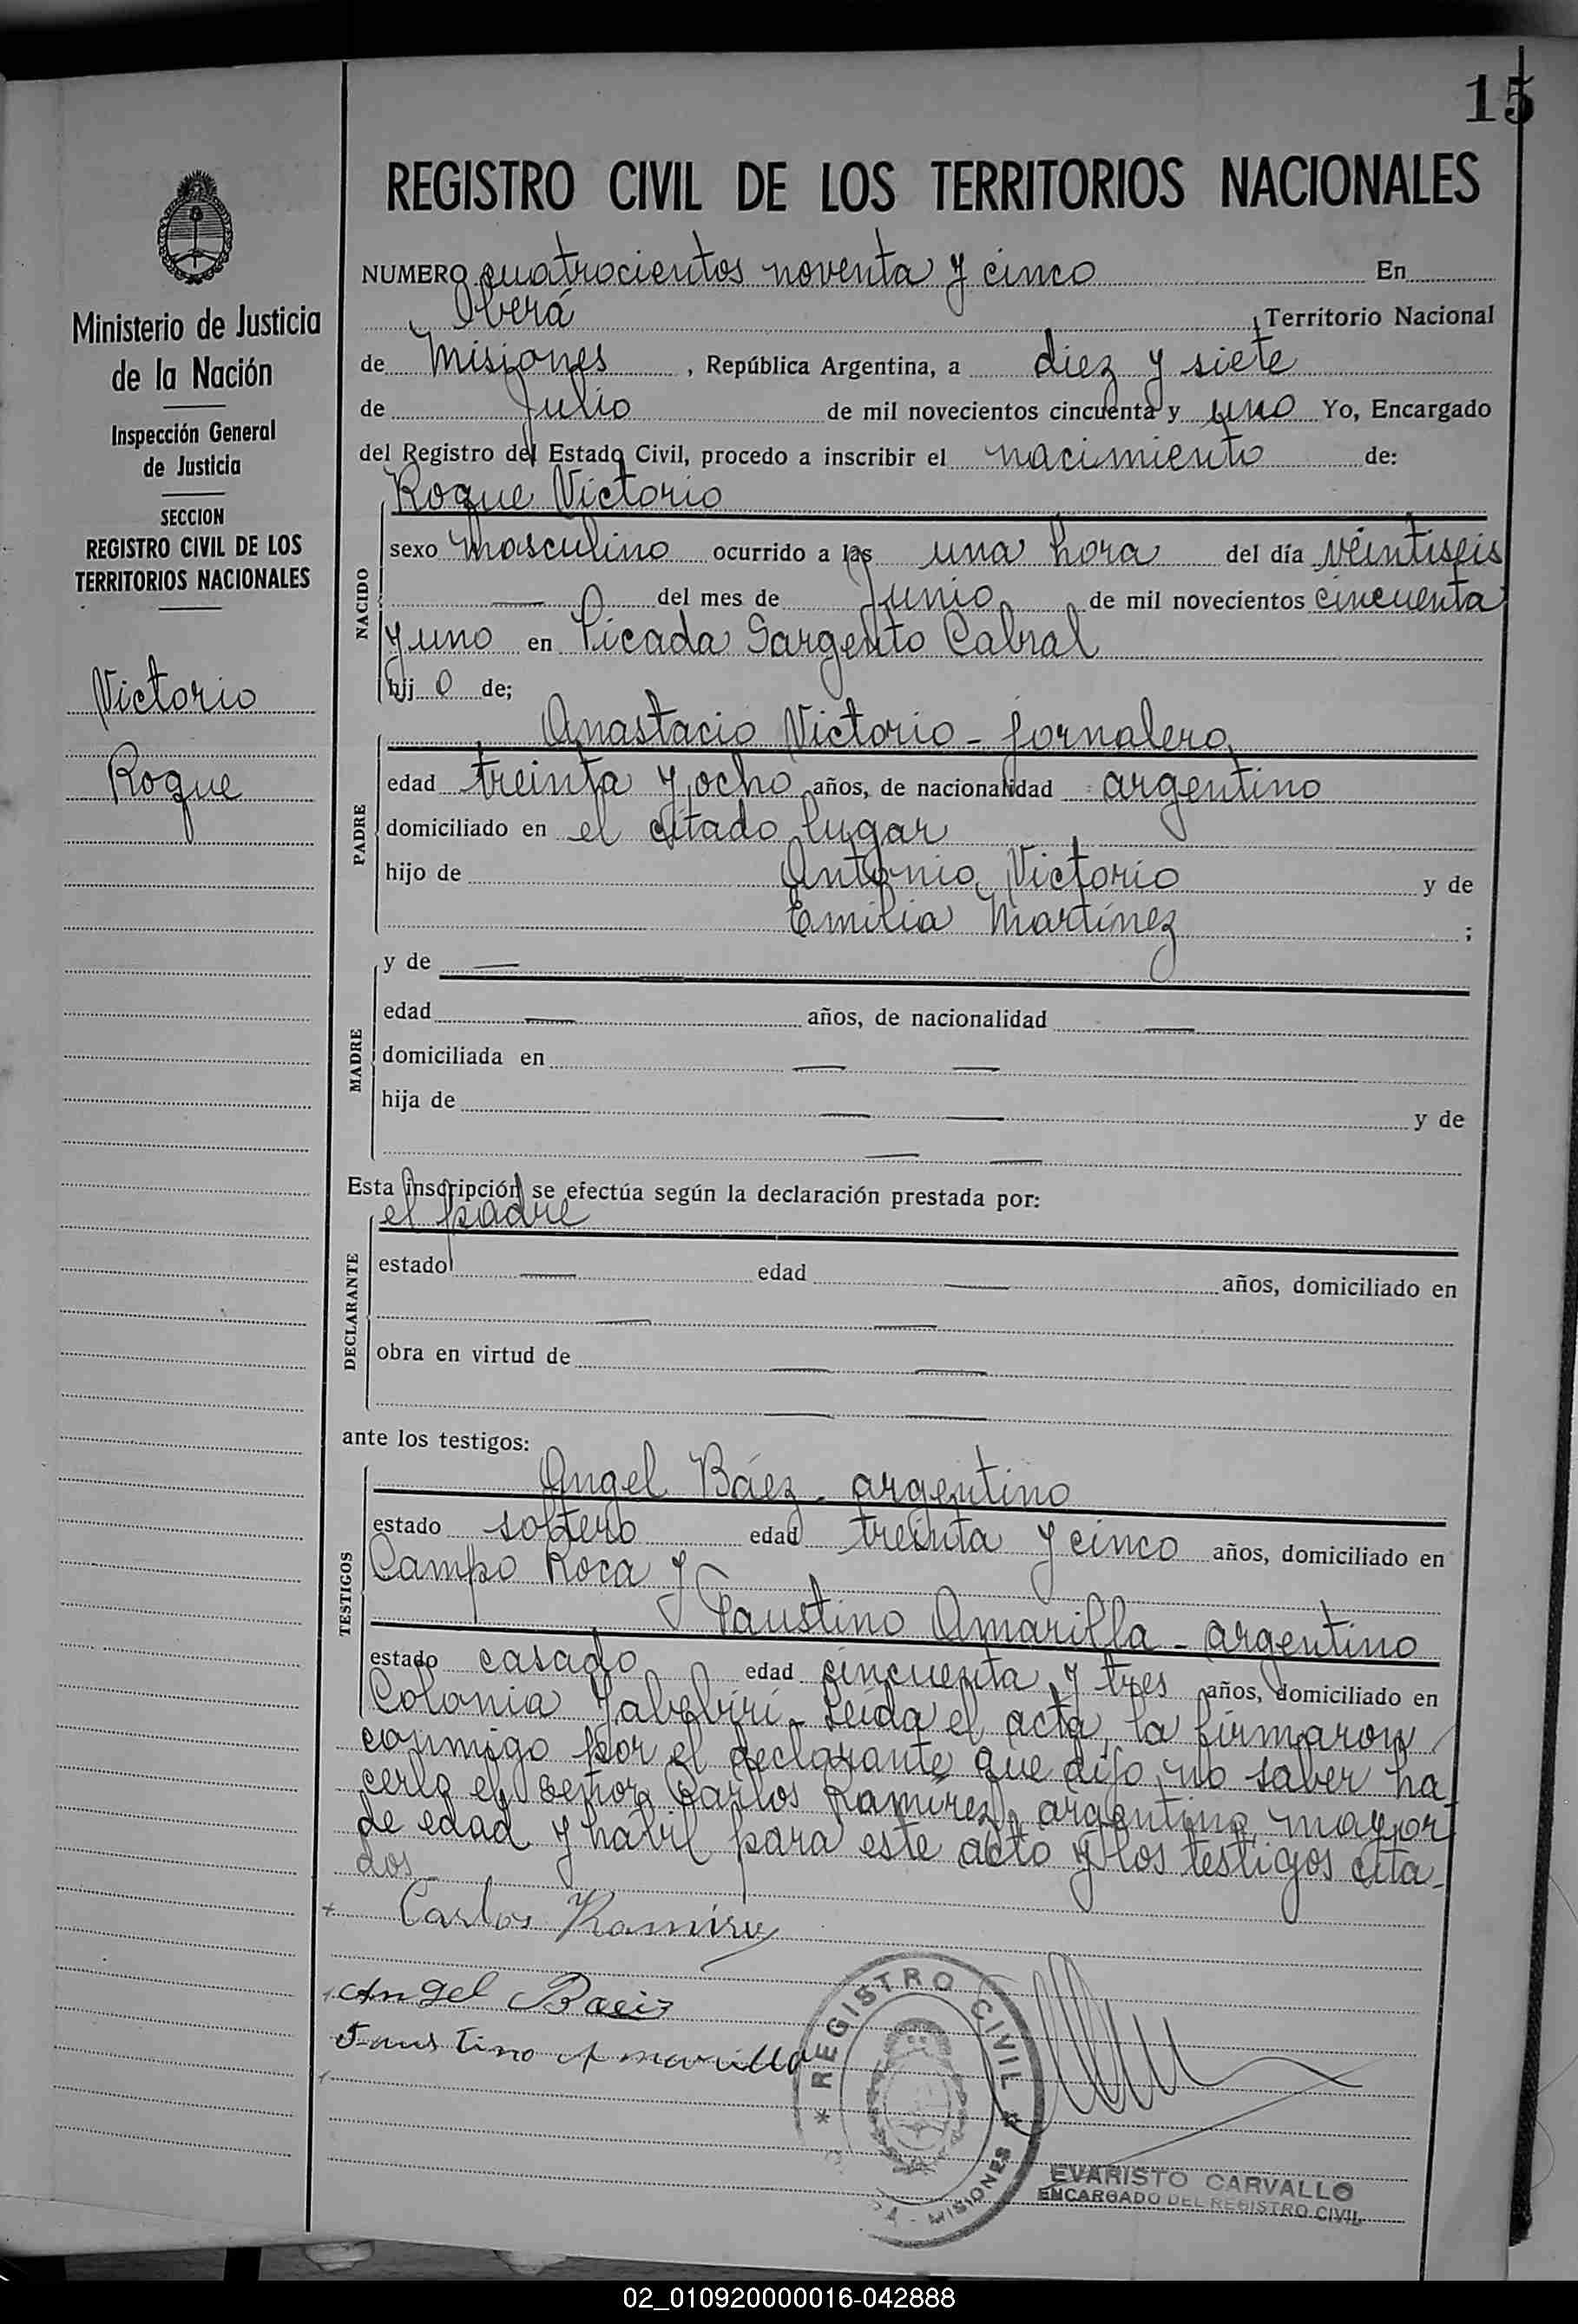 15
REGISTRO CIVIL DE LOS TERRITORIOS NACIONALES
Ministerio de Justicia
de la Nación
Inspección General
de Justicia
SECCION
REGISTRO CIVIL DE LOS
TERRITORIOS NACIONALES
Victorio
Roque
NUMERO cuatrocientos noventa y cinco En
Oberá, Territorio Nacional
de Misiones, República Argentina, a diez y siete
de Julio de mil novecientos cincuenta y uno Yo, Encargado
del Registro del Estado Civil, procedo a inscribir el nacimiento de:
NACIDO
Roque Victorio
sexo masculino ocurrido a las una hora del día veintiseis
— del mes de Junio de mil novecientos cincuenta
y uno en Picada Sargento Cabral
hij o de;
PADRE
Anastacio Victorio - jornalero
edad treinta y ocho años, de nacionalidad argentino
domiciliado en el citado lugar
hijo de Antonio Victorio y de
Emilia Martínez ;
MADRE
y de —
edad — años, de nacionalidad —
domiciliada en — —
hija de — — y de
— —
Esta inscripción se efectúa según la declaración prestada por:
el padre
DECLARANTE
estado — edad — años, domiciliado en
— —
obra en virtud de — —
— —
ante los testigos:
TESTIGOS
Angel Báez - argentino
estado soltero edad treinta y cinco años, domiciliado en
Campo Roca y
Faustino Amarilla - argentino
estado casado edad cincuenta y tres años, domiciliado en
Colonia Yabebirí - Leída el acta, la firmaron
conmigo por el declarante que dijo no saber ha
cerlo el señor Carlos Ramírez, argentino, mayor
de edad y habil para este acto y los testigos cita-
dos
Carlos Ramirez
Angel Baeis
Faustino Amarilla
* REGISTRO CIVIL *
MISIONES
EVARISTO CARVALLO
ENCARGADO DEL REGISTRO CIVIL
02_010920000016-042888